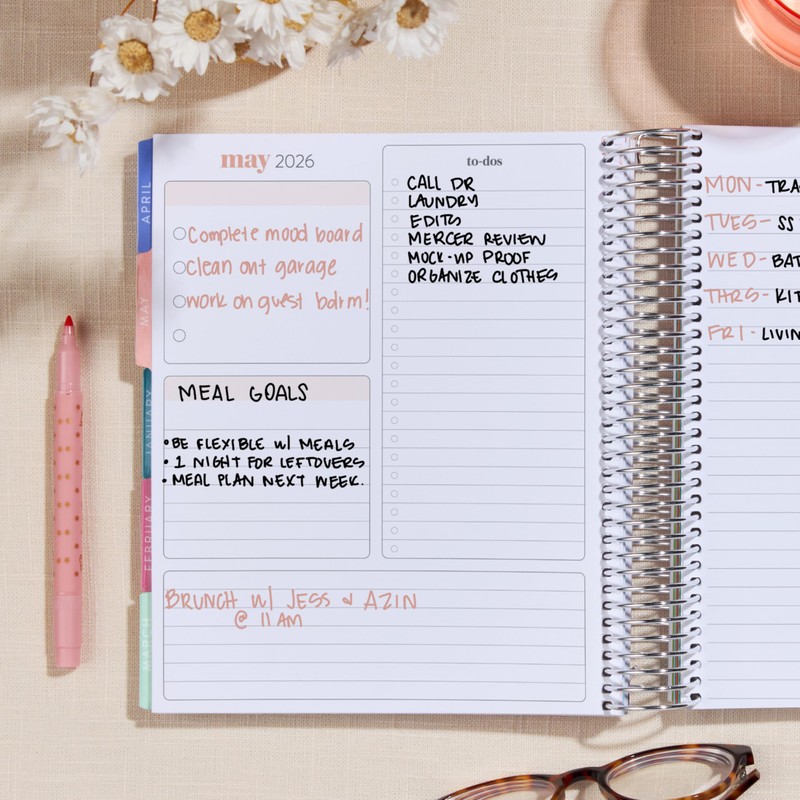 may 2026
Complete mood board
clean out garage
work on guest bdrm!
MEAL GOALS
• BE FLEXIBLE W/ MEALS
• 1 NIGHT FOR LEFTOVERS
• MEAL PLAN NEXT WEEK.
BRUNCH W/ JESS & AZIN
@ 11 AM
to-dos
CALL DR
LAUNDRY
EDITS
MERCER REVIEW
MOCK-UP PROOF
ORGANIZE CLOTHES
MON - TRA
TUES - SS
WED - BAT
THRS - KIT
FRI - LIVIN
APRIL
MAY
JANUARY
FEBRUARY
MARCH